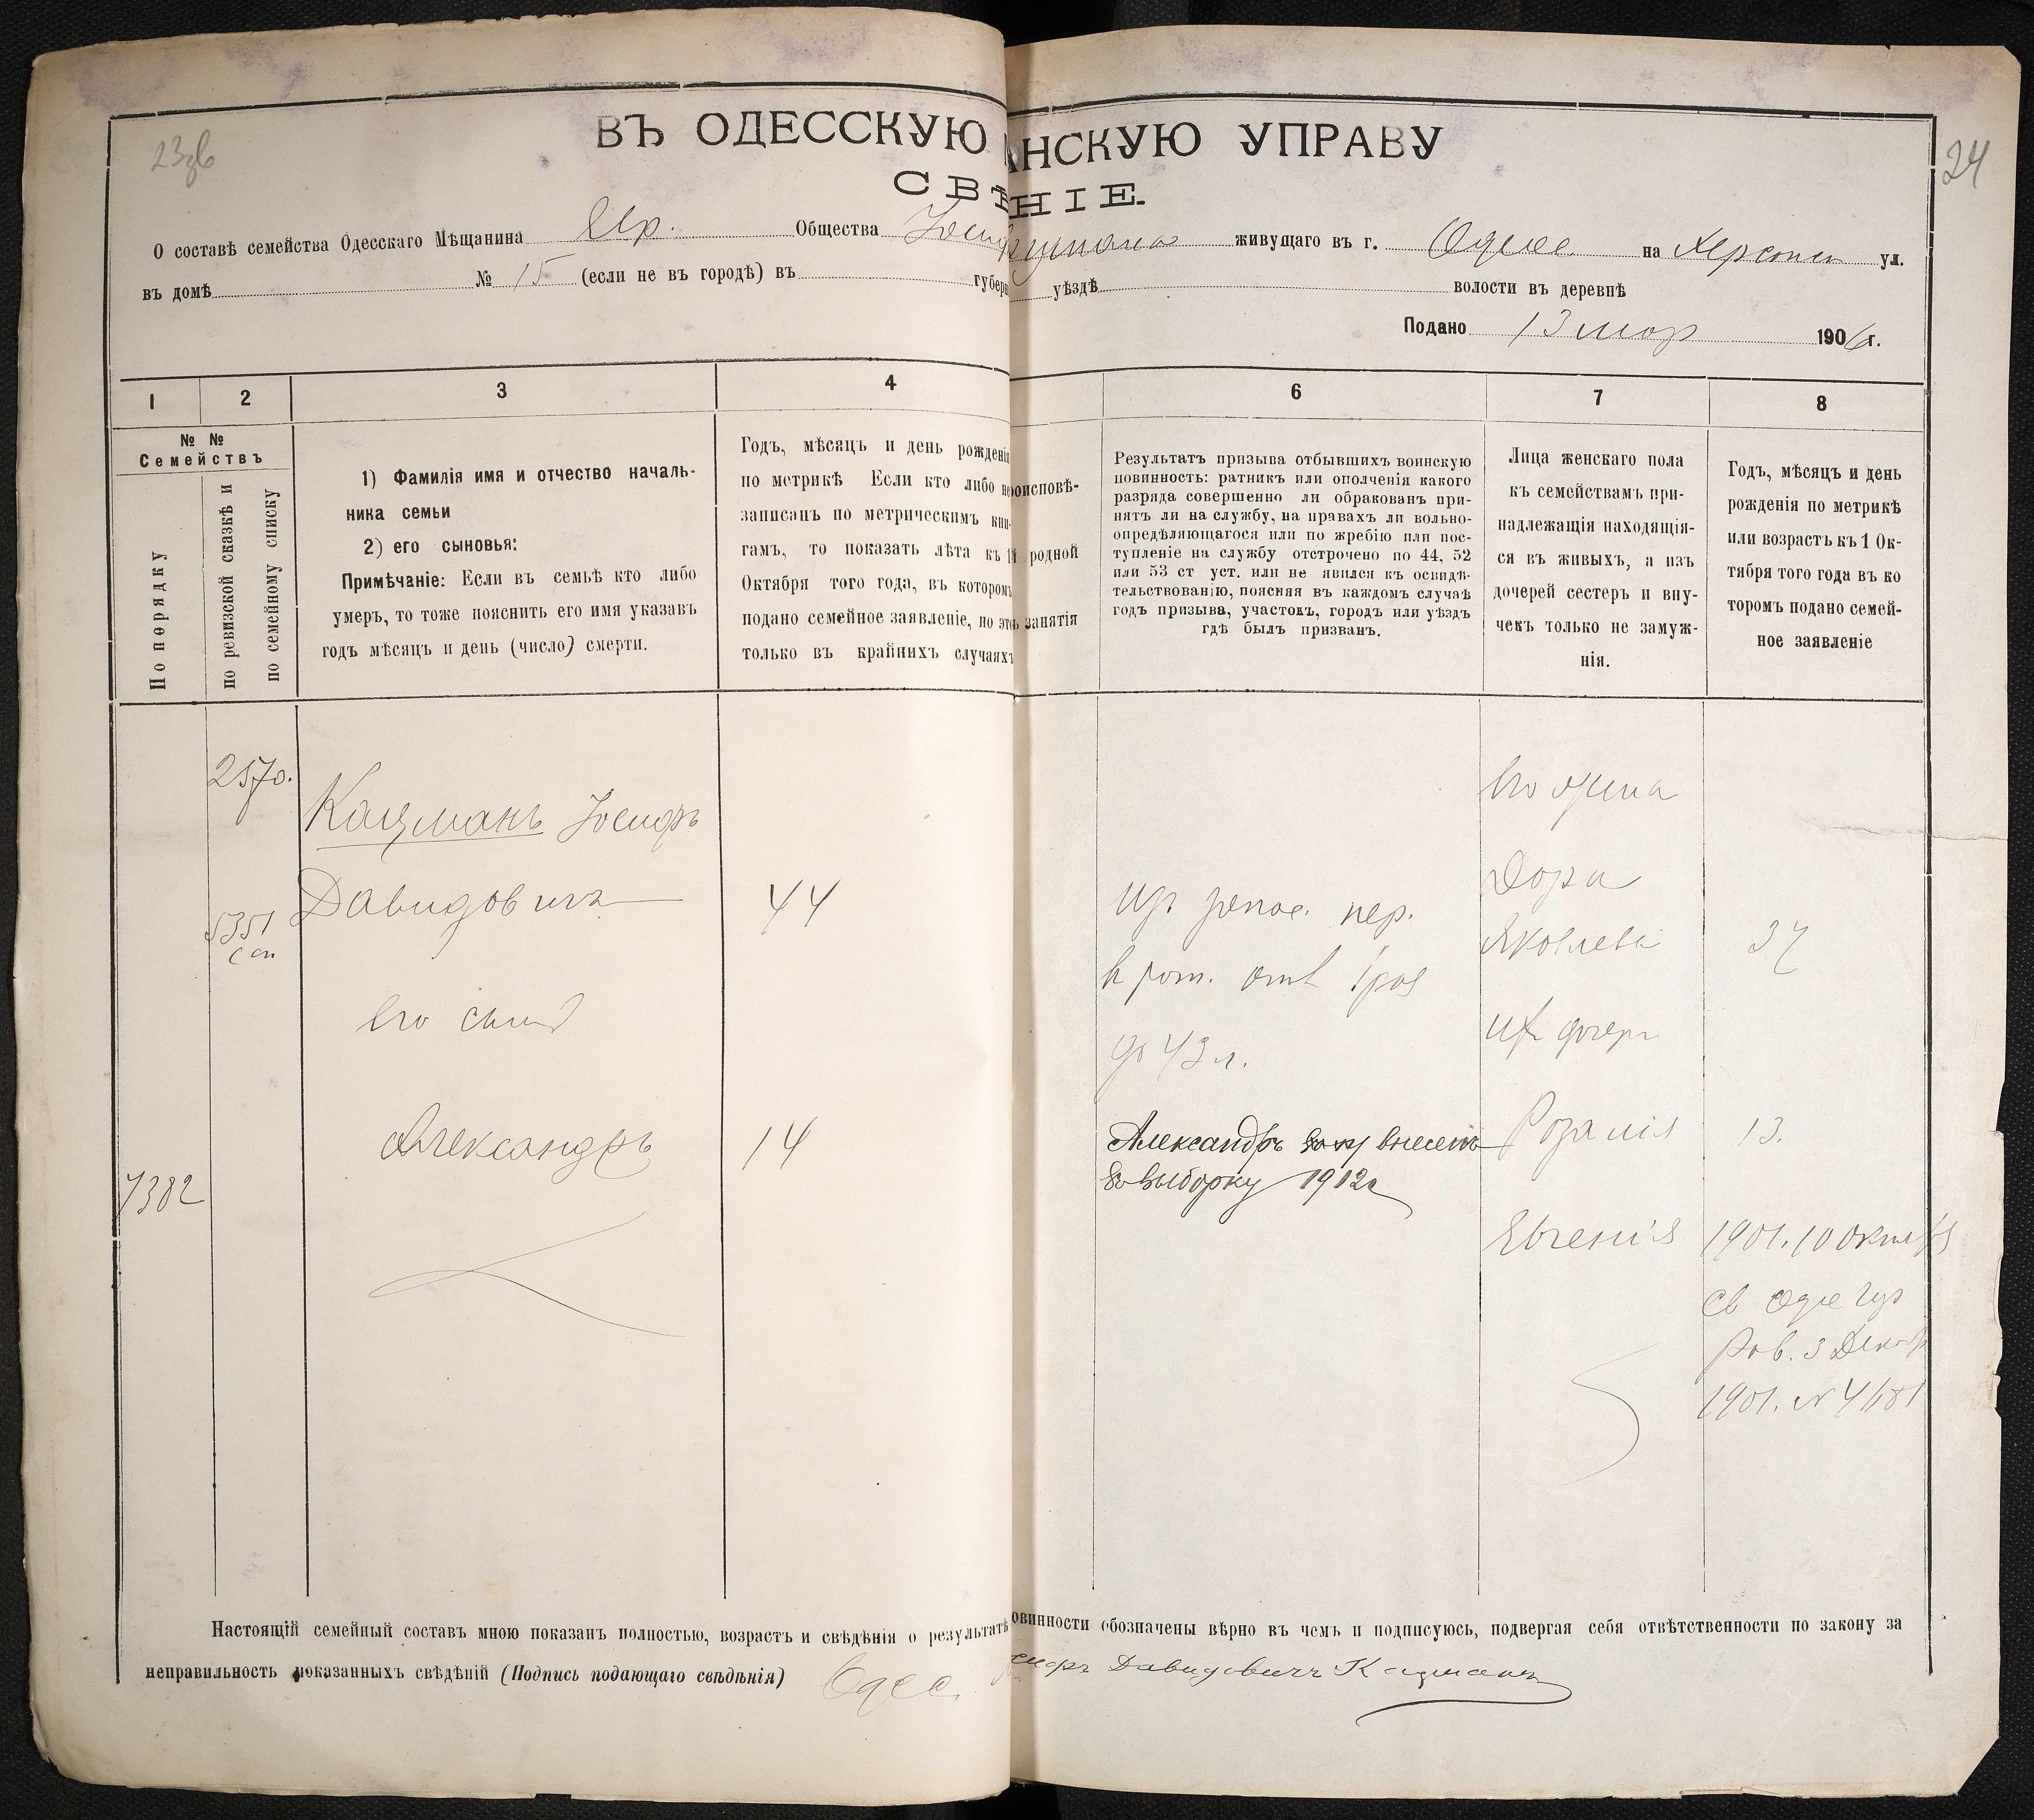 23об
24
ВЪ ОДЕССКУЮ АНСКУЮ УПРАВУ
СВѢНІЕ.
О составѣ семейства Одесскаго Мѣщанина Евр. Общества живущаго въ г. Одессѣ на Херсонск ул.
въ домѣ № 15 (если не въ городѣ) въ губерн уѣздѣ волости въ деревнѣ
Подано 13 мар 1906 г.
1 2 3 4 6 7 8
№ №
Семействъ
По порядку
по ревизской сказкѣ и
по семейному списку
1) Фамилія имя и отчество началь-
ника семьи
2) его сыновья:
Примѣчаніе: Если въ семьѣ кто либо
умеръ, то тоже пояснить его имя указавъ
годъ мѣсяцъ и день (число) смерти.
Годъ, мѣсяцъ и день рожденія
по метрикѣ Если кто либо не
записанъ по метрическимъ кни-
гамъ, то показать лѣта къ 1
Октября того года, въ которомъ
подано семейное заявленіе, но это
только въ крайнихъ случаяхъ
роисповѣ-
й родной
занятія
Результатъ призыва отбывшихъ воинскую
повинность: ратникъ или ополченія какого
разряда совершенно ли обракованъ при-
нятъ ли на службу, на правахъ ли вольно-
опредѣляющагося или по жребію или пос-
тупленіе на службу отстрочено по 44, 52
или 53 ст уст. или не явился къ освидѣ-
тельствованію, поясняя въ каждомъ случаѣ
годъ призыва, участокъ, городъ или уѣздъ
гдѣ былъ призванъ.
Лица женскаго пола
къ семействамъ при-
надлежащія находящія-
ся въ живыхъ, а изъ
дочерей сестеръ и вну-
чекъ только не замуж-
нія.
Годъ, мѣсяцъ и день
рожденія по метрикѣ
или возрастъ къ 1 Ок-
тября того года въ ко
торомъ подано семей-
ное заявленіе
2570.
Кацманъ Іосифъ
Давидовичъ 44
5351
с сп
его сынъ
Александръ 14
7382
изъ запас. пер.
в рат. опл 1 раз
до 43 л.
Александръ внесенъ
въ выборку 1912 г
его жена
Дора
Яковлева 37
их дочери
Розалія 13.
Евгенія 1901. 10 октяб
св Оде гор
Рав. 3 Декаб
1901. №
Настоящій семейный составъ мною показанъ полностью, возрастъ и свѣдѣнія о результатѣ овинности обозначены вѣрно въ чемъ и подписуюсь, подвергая себя отвѣтственности по закону за
неправильность показанныхъ свѣдѣній (Подпись подающаго свѣдѣнія) Одес. сифъ Давидовичъ Кацманъ